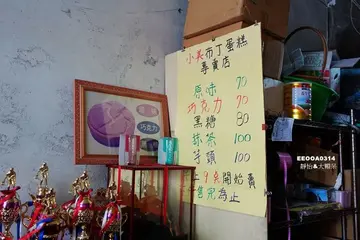 小吳布丁蛋糕
專賣店
原味 70
巧克力 70
黑糖 80
抹茶 100
芋頭 100
上9點開始賣
售完為止
巧克力
EEOOA0314
靜怡&大顆呆